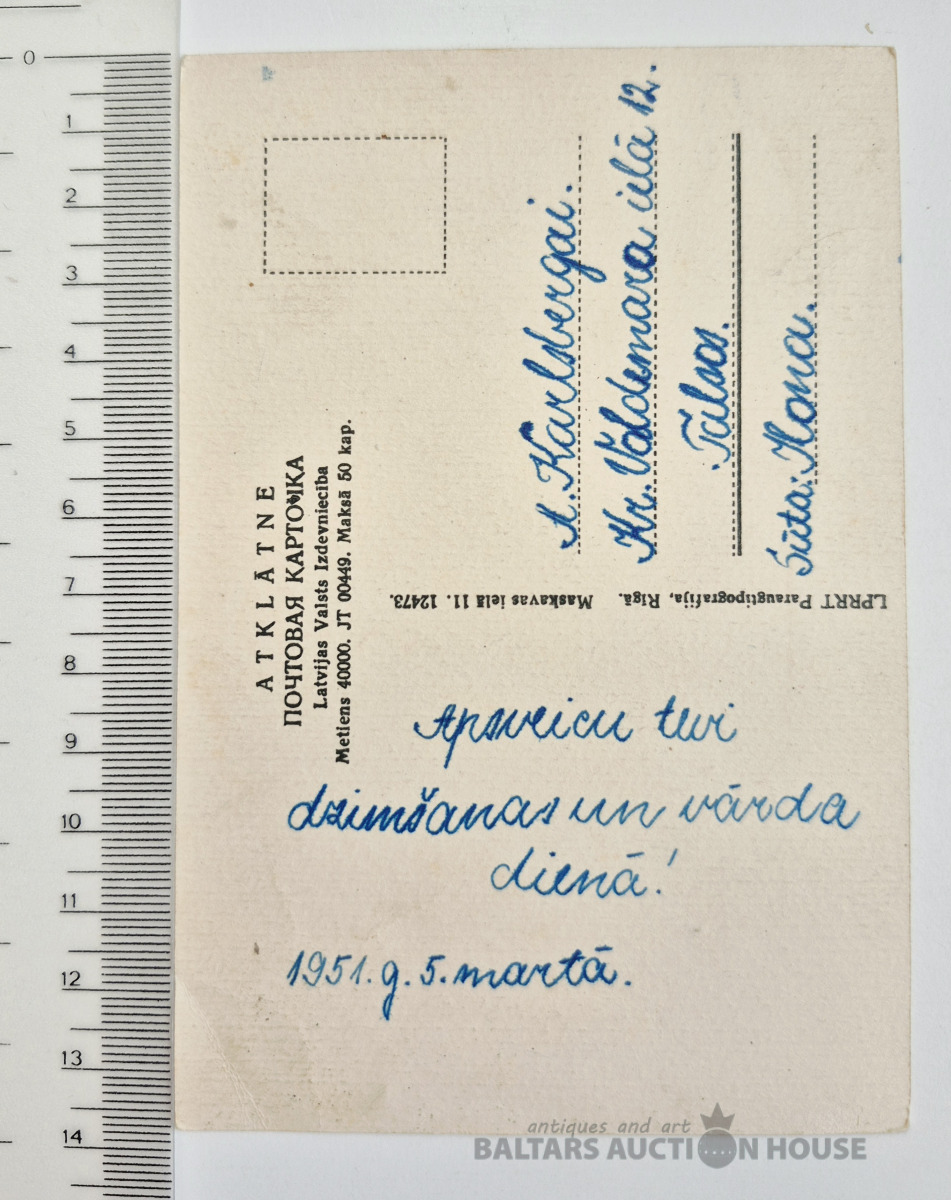 ATKLĀTNE
ПОЧТОВАЯ КАРТОЧКА
Latvijas Valsts Izdevniecība
Metiens 40000. JT 00449. Maksā 50 kap.
A. Karlsbergai.
Kr. Valdemāra ielā 12.
Talsos.
Sūta: Ilona.
LPRRT Paraugtipografija, Rīgā. Maskavas ielā 11. 12473.
Apsveicu tevi
dzimšanas un vārda
dienā!
1951. g. 5. martā.
0
1
2
3
4
5
6
7
8
9
10
11
12
13
14
antiques and art
BALTARS AUCTION HOUSE